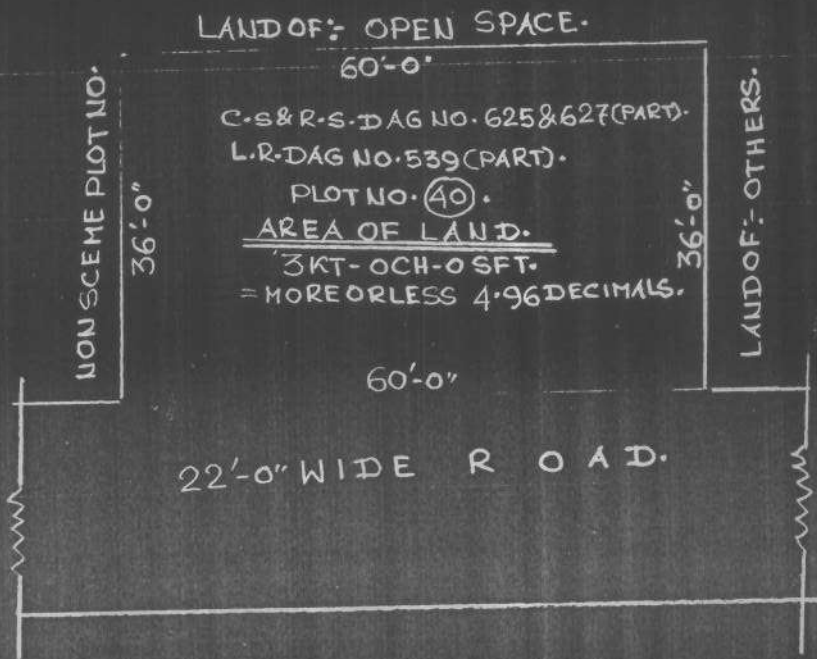 LAND OF:- OPEN SPACE.
60'-0"
NON SCEME PLOT NO.
36'-0"
C.S & R.S. DAG NO. 625 & 627 (PART).
L.R. DAG NO. 539 (PART).
PLOT NO. 40.
AREA OF LAND.
3 KT - 0 CH - 0 SFT.
= MORE OR LESS 4.96 DECIMALS.
36'-0"
LAND OF:- OTHERS.
60'-0"
22'-0" WIDE ROAD.